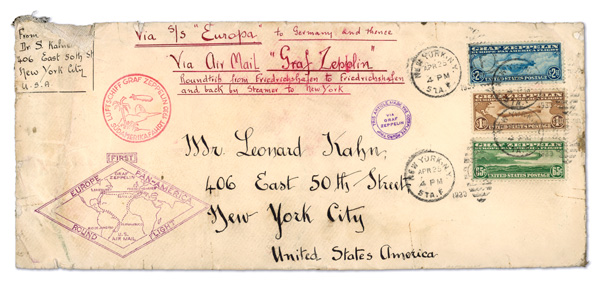 From
Dr S. Kahn
406 East 50th St
New York City
U.S.A.
Via S/S "Europa" to Germany and thence
Via Air Mail "Graf Zepplin"
Roundtrip from Friedrichshafen to Friedrichshafen
and back by Steamer to New York
LUFTSCHIFF GRAF ZEPPELIN
SÜDAMERIKAFAHRT
VIA
GRAF
ZEPPELIN
NEW YORK, N.Y.
APR 25
4 PM
STA. F
GRAF ZEPPELIN
2 2
UNITED STATES POSTAGE
GRAF ZEPPELIN
1
UNITED STATES POSTAGE
GRAF ZEPPELIN
65 65
UNITED STATES POSTAGE
NEW YORK, N.Y.
APR 25
4 PM
STA. F
Mr. Leonard Kahn,
406 East 50th Street
New York City
United States America
FIRST
EUROPE PAN-AMERICA
GRAF
ZEPPELIN
ROUND FLIGHT
U.S.
AIR MAIL